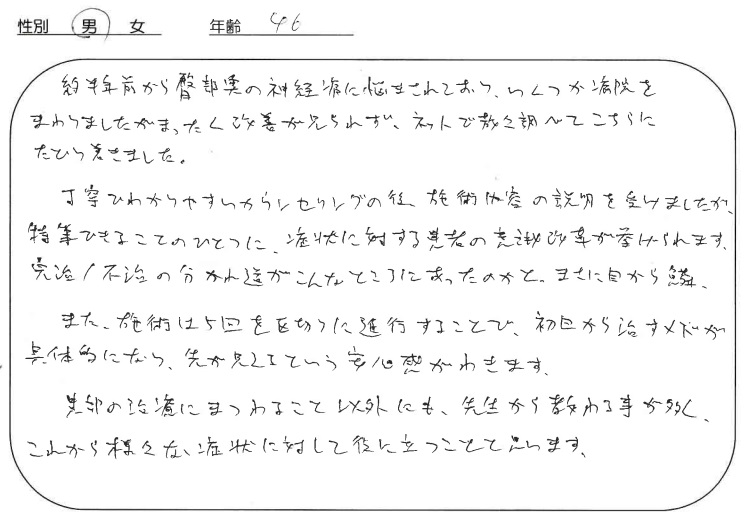 性別 男 女 年齢 46
約半年前から臀部奥の神経痛に悩まされており、いくつか病院を
まわりましたがまったく改善が見られず、ネットで散々調べてこちらに
たどり着きました。
丁寧でわかりやすいカウンセリングの後、施術内容の説明を受けましたが、
特筆できることのひとつに、症状に対する患者の意識改革が挙げられます。
完治/不治の分かれ道がこんなところにあったのかと。まさに目から鱗。
また、施術は5回を区切りに進行することで、初回から治すメドが
具体的になり、先が見えるという安心感がわきます。
患部の治療にまつわること以外にも、先生から教わる事が多く、
これから様々な症状に対して役に立つことと思います。